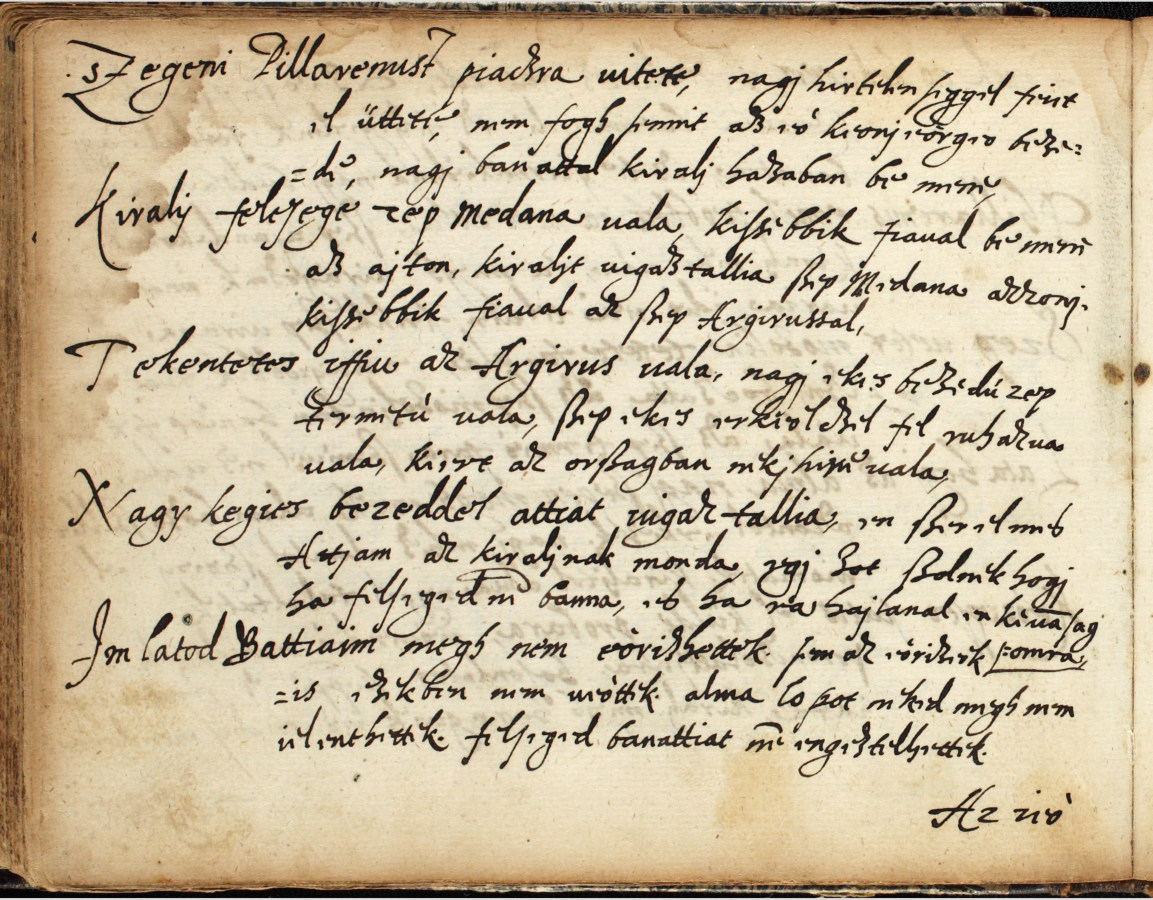 sZegeni Pillarenust piaczra uitete, nagj hirtelen seggel feiet
el üttete, nem fogh semmit az io keonjeörgeo beze=
=de, nagj banattal kiralj hazaban be mene,
Kiralij felesege zep Medana uala, kissebbik fiaual be mene
az ajton, kiraljt uigaztallia szep Medana azzonj.
kissebbik fiaual az szep Argirussal,
Tekentetes iffiu az Argirus uala, nagj ekes bezedú zep
termetú uala, szep ekes erkeolczel fel ruhazua
uala, kiert az orszagban nekj hire uala,
Nagy kegies bezeddel attiat uigaztallia, en szerelmes
Attjam az kiraljnak monda, egj zot szolnek hogj
ha felseged nē banna, es ha ra hajlanal en keuāsag
somra,
Im latod Battiaim megh nem eòrizhettek. sem az eórizeek
=is ezekben nem ueòttek. alma lopot neked megh nem
ielenthettek. felseged banattiat nē engeztelhettek.
Az ieó